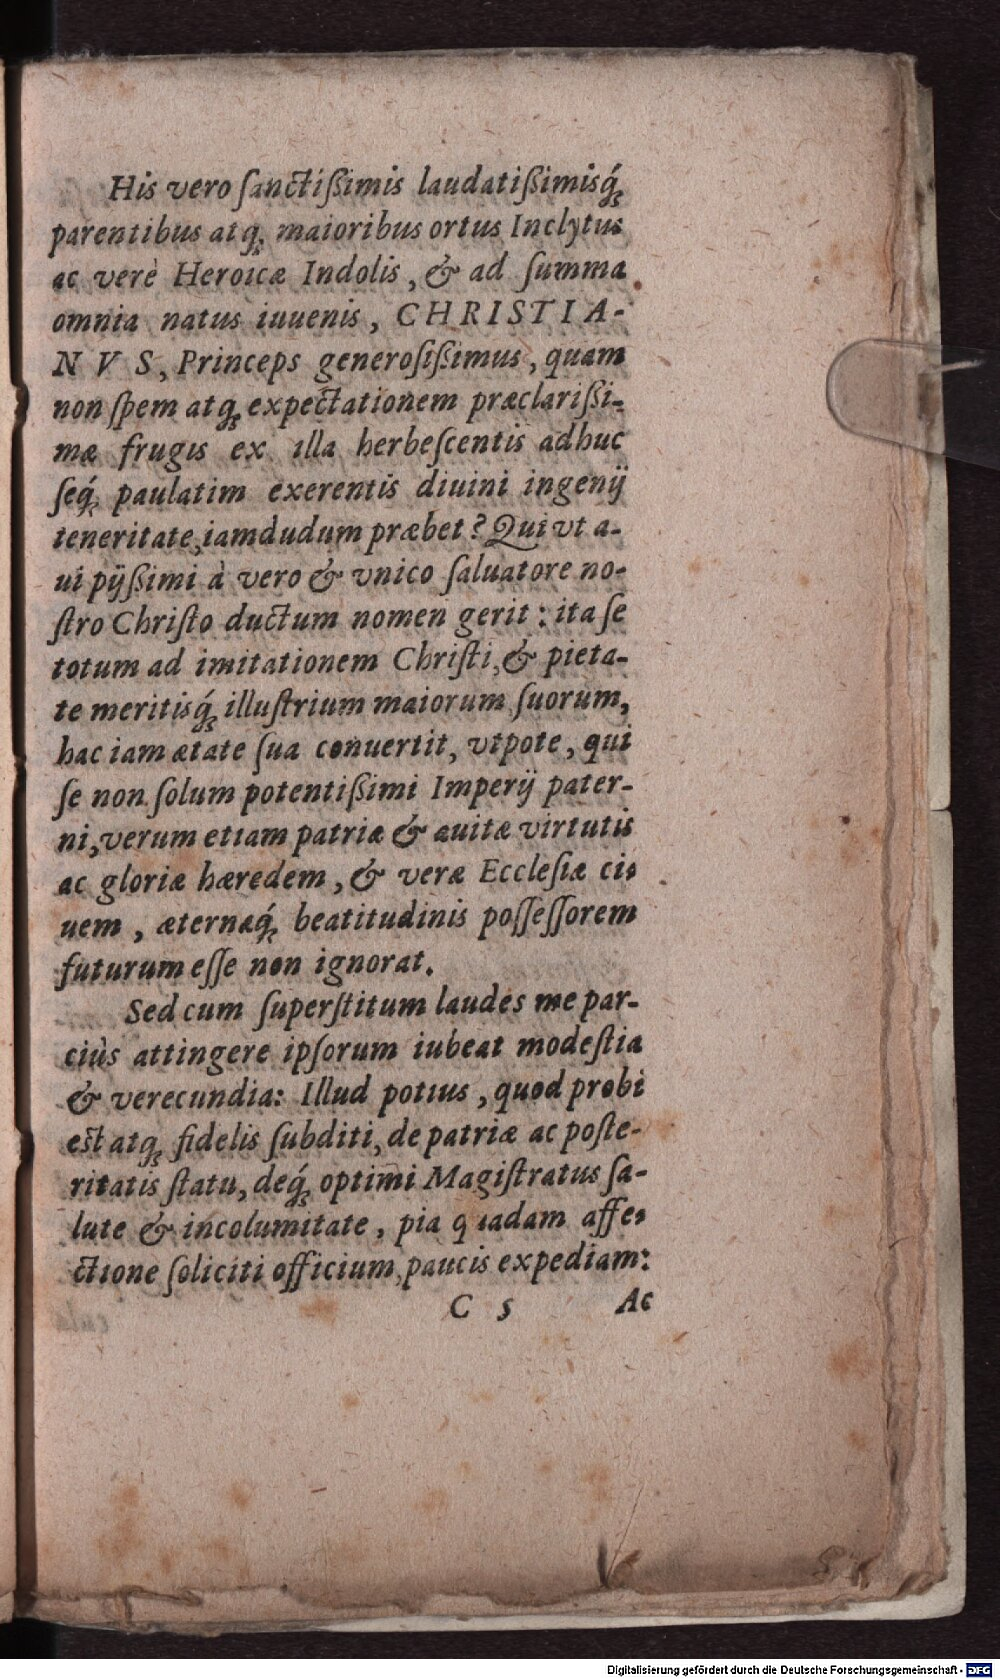 His vero ſanctiſsimis laudatiſsimisq́;
parentibus atq; maioribus ortus Inclytus
ac verè Heroicæ Indolis, & ad ſumma
omnia natus iuuenis, CHRISTIA-
NVS, Princeps generoſiſsimus, quam
non ſpem atq; expectationem præclariſsi-
mæ frugis ex illa herbeſcentis adhuc
ſeq́; paulatim exerentis diuini ingenij
teneritate, iamdudum præbet? Qui vt a-
ui pijſsimi à vero & vnico ſaluatore no-
ſtro Chriſto ductum nomen gerit: ita ſe
totum ad imitationem Chriſti, & pieta-
te meritisq́; illuſtrium maiorum ſuorum,
hac iam ætate ſua conuertit, vtpote, qui
ſe non ſolum potentiſsimi Imperij pater-
ni, verum etiam patriæ & auitæ virtutis
ac gloriæ hæredem, & veræ Eccleſiæ ci-
uem, æternæq́; beatitudinis poſſeſſorem
futurum eſſe non ignorat.
Sed cum ſuperſtitum laudes me par-
ciùs attingere ipſorum iubeat modeſtia
& verecundia: Illud potius, quod probi
eſt atq; fidelis ſubditi, de patriæ ac poſte-
ritatis ſtatu, deq́; optimi Magiſtratus ſa-
lute & incolumitate, pia quadam affe-
ctione ſoliciti officium, paucis expediam:
C 5 Ac
Digitalisierung gefördert durch die Deutsche Forschungsgemeinschaft - DFG